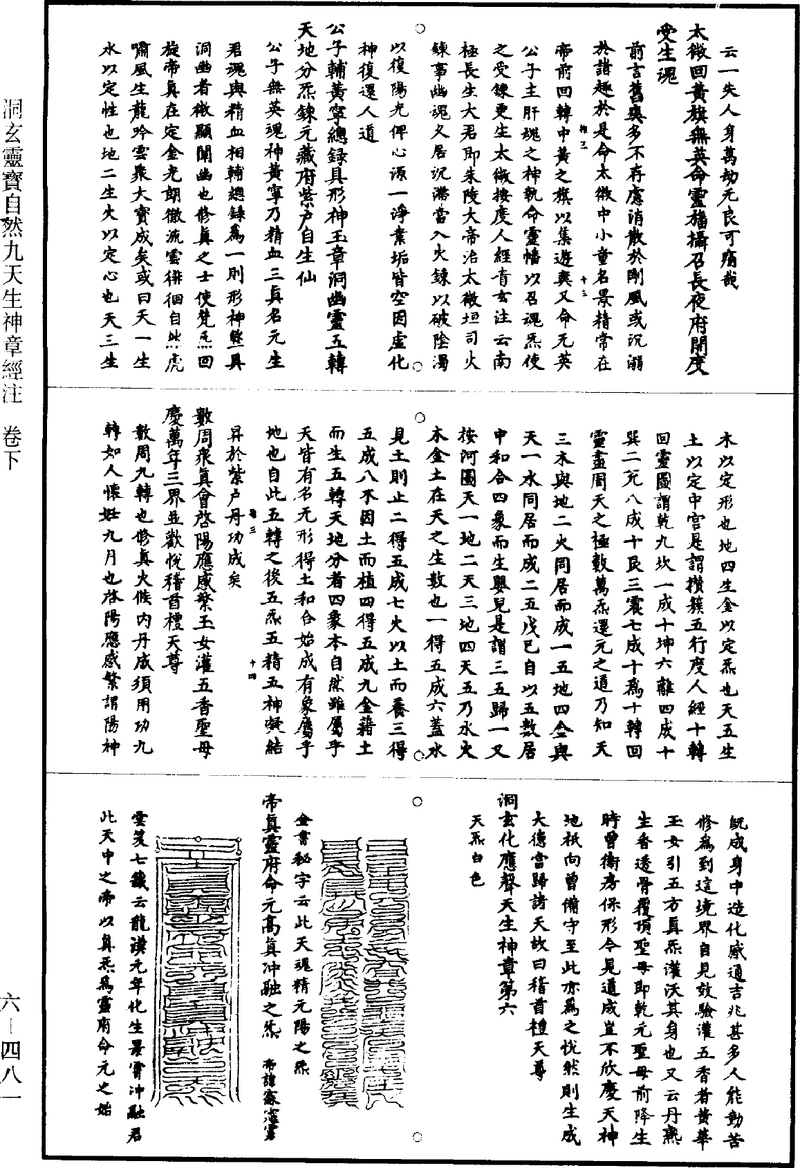 云一失人身萬劫元良可痛哉
太微回黃旗無英命靈旛攝召長夜府開度
受生魂
前言舊與多不存慮消散於剛風或沉溺
於諸趣於是命太微中小童名景精常在
帝前回轉中黃之旗以集遊爽又命元英
公子主肝魂之神執命靈幡以召魂炁使
之受鍊更生太微按度人經青玄注云南
極長生大君即朱陵大帝治太微垣司火
鍊事幽魂久居沉滯當入火鍊以破陰濁
以復陽光俾心源一淨業垢皆空因虛化
神復還人道
公子輔黃寧總錄具形神玉章洞幽靈五轉
天地分炁鍊元藏府紫戶自生仙
公子無英魂神黃寧乃精血三真名元生
君魂與精血相輔總錄為一則形神無具
洞幽者微顯闡幽也修真之士使梵炁回
旋帝真在定金光朗徹流雲徘徊自然虎
嘯風生龍吟雲聚大寶成矣或曰天一生
水以定性也地二生火以定心也天三生
木以定形也地四生金以定炁也天五生
土以定中宮是謂攢簇五行度人經十轉
回靈圖謂乾九坎一成十坤六離四成十
巽二兌八成十艮三震七成十為十轉回
靈盡周天之極數萬炁還元之道乃知天
三木與地二火同居而成一五地四金與
天一水同居而成二五戊己自以五數居
中和合四象而生嬰兒是謂三五歸一又
按河圖天一地二天三地四天五乃水火
木金土在天之生數也一得五成六蓋水
見土則止二得五成七火以土而養三得
五成八木因土而植四得五成九金藉土
而生五轉天地分者四象本自然雖屬乎
天皆有名元形得土和合始成有象屬乎
地也自此五轉之後五炁五精五神凝結
昇於紫戶丹功成矣
數周眾真會啓陽應感繁玉女灌五香聖母
慶萬年三界並歡悅稽首禮天尊
數周九轉也修真火候內丹成須用功九
轉如人懷妊九月也啓陽應感繁謂陽神
既成身中造化感通吉兆甚多人能勤苦
修為到這境界自見效驗灌五香者黃華
玉女引五方真炁灌沃其身也又云丹熟
生香透骨覆頂聖母即乾元聖母前降生
時曾衛房保形今見道成豈不欣慶天神
地祇向曾備守至此亦為之忻然則生成
大德當歸諸天故曰稽首禮天尊
洞玄化應聲天生神章第六
天炁白色
金書秘字云此天魂精元陽之炁
帝真靈府命元高真沖融之炁
雲笈七籤云龍漢元年化生景霄沖融君
此天中之帝以真炁為靈府命元之始
洞玄靈寶自然九天生神章經注 卷下
六—四八一